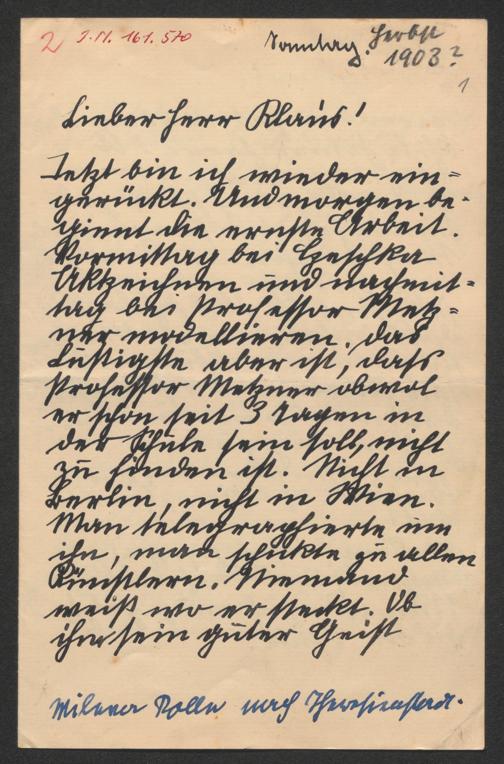 2 J.N. 161.570
Sonntag. Herbst
1903?
1
Lieber Herr Klaus!
Jetzt bin ich wieder ein=
gerückt. Und morgen be-
gient die ernste Arbeit.
Vormittag bei Czeschka
Aktzeichnen und nachmit=
tag bei Professor Metz=
ner modellieren. Das
Lustigste aber ist, dass
Professor Metzner obwol
er schon seit 3 Tagen in
der Schule sein soll, nicht
zu finden ist. Nicht in
Berlin, nicht in Wien.
Man telegraphierte um
ihn, man schickte zu allen
Künstlern. Niemand
weiß wo er steckt. Ob
ihn sein guter Geist
nach Theresienstadt.